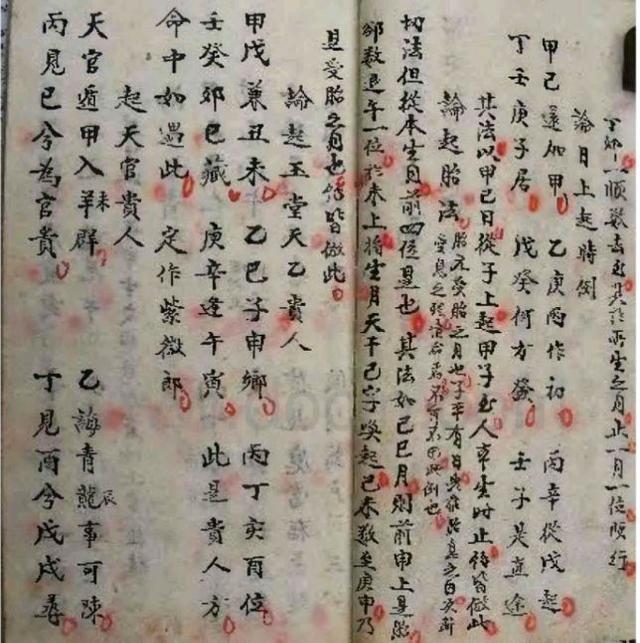 順數去至其訖所生之月止一月一位順行
論日上起時例
甲己還加甲 乙庚丙作初 丙辛從戊起
丁壬庚子居 戊癸何方發 壬子是直途
其法以甲己日從子上起甲子至人家生時止餘皆倣此
論起胎法 胎元受胎之月也子平有曰 受息之 不可不 此倒也
切法但從本生月前四位是也 其法如己巳月則前申上是胎
卻数退午一位於未上將生月天干己字喚起己未数至庚申乃
是受胎之月也餘皆倣此
論起玉堂天乙貴人
甲戊兼丑未 乙巳子申鄉 丙丁亥酉位
壬癸卯巳藏 庚辛逢午寅 此是貴人方
命中如遇此 定作紫微郎
起天官貴人
天官遁甲入羊未群 乙誨青龍辰事可陳
丙見巳兮為官貴 丁見酉兮戊戌尋